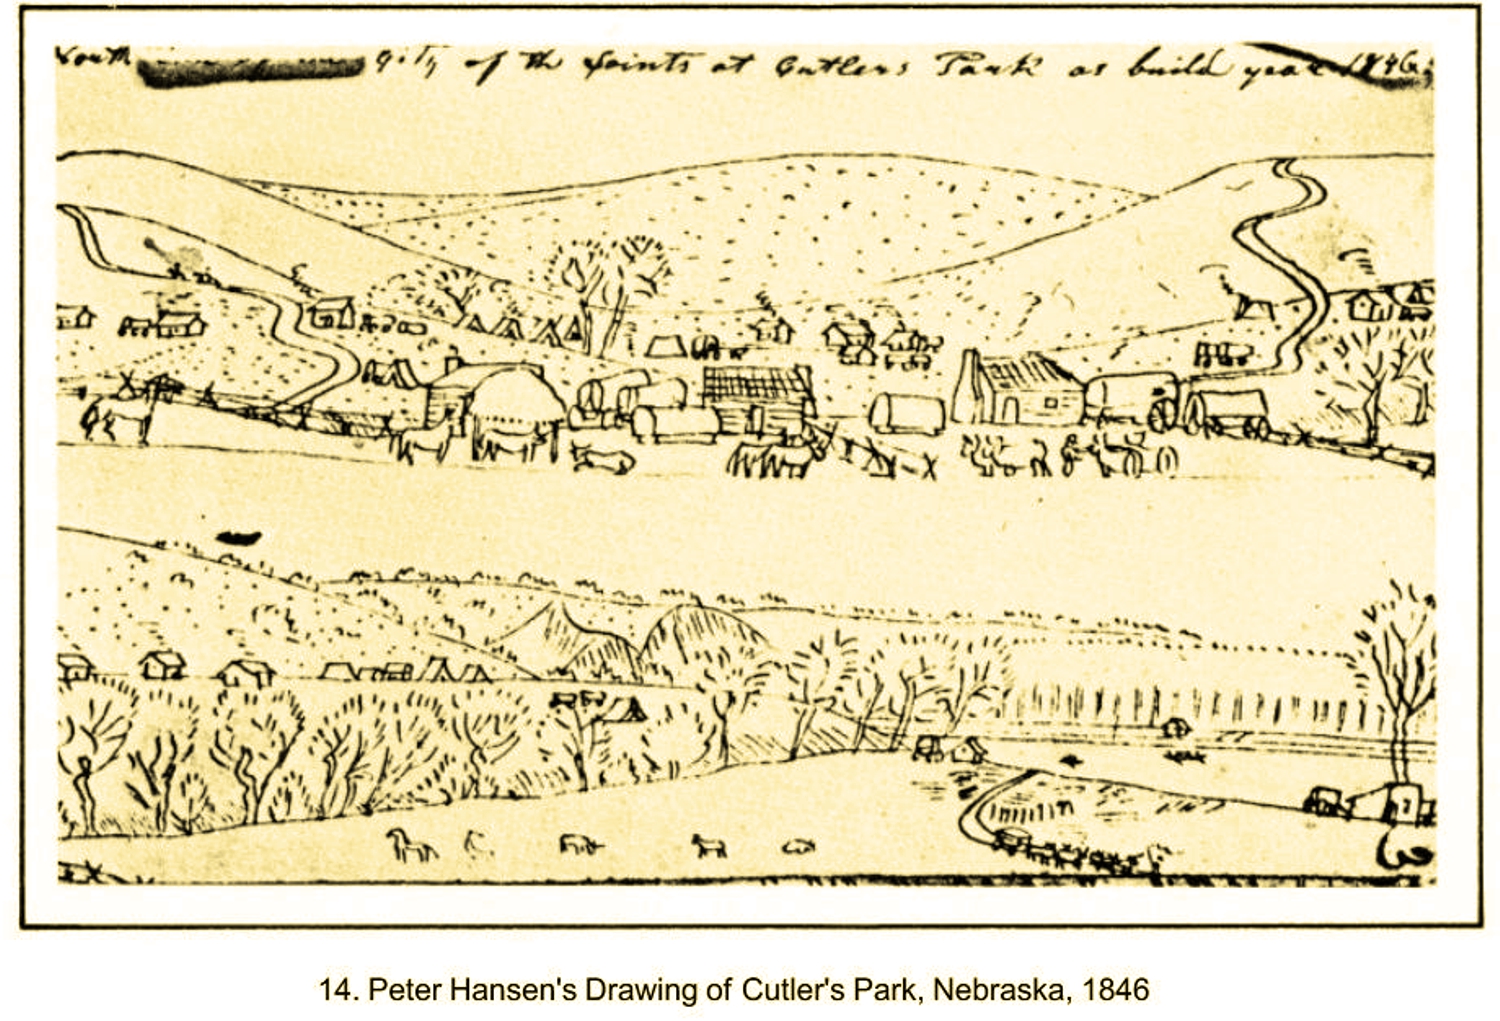 South City of the Saints at Cutlers Park as build year 1846.
3
14. Peter Hansen's Drawing of Cutler's Park, Nebraska, 1846